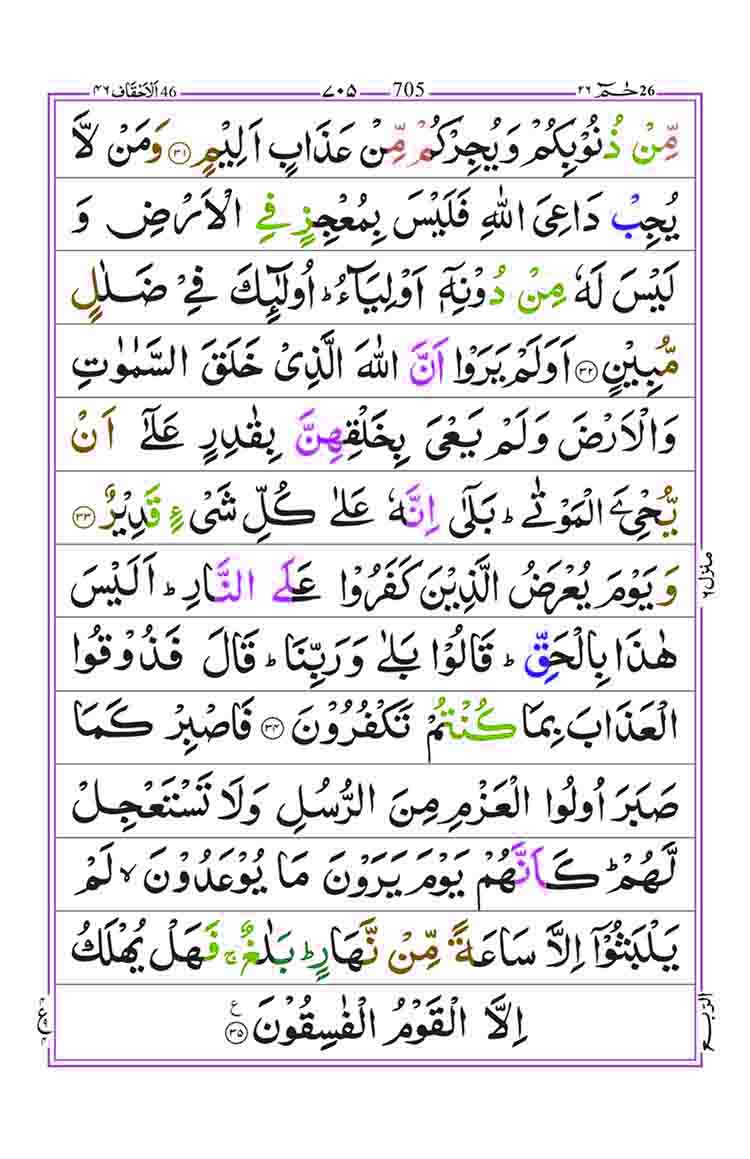 حٰمٓ 26 ٢٦ 705 ٧٠٥ الاحقاف 46 ٤٦
مِّنْ ذُنُوْبِكُمْ وَيُجِرْكُمْ مِّنْ عَذَابٍ اَلِيْمٍ ۝٣١ وَمَنْ لَّا
يُجِبْ دَاعِیَ اللّٰهِ فَلَيْسَ بِمُعْجِزٍ فِی الْاَرْضِ وَ
لَيْسَ لَهٗ مِنْ دُوْنِهٖۤ اَوْلِيَآءُ ؕ اُولٰٓئِكَ فِیْ ضَلٰلٍ
مُّبِيْنٍ ۝٣٢ اَوَلَمْ يَرَوْا اَنَّ اللّٰهَ الَّذِیْ خَلَقَ السَّمٰوٰتِ
وَالْاَرْضَ وَلَمْ يَعْیَ بِخَلْقِهِنَّ بِقٰدِرٍ عَلٰۤی اَنْ
يُّحْیِۦَ الْمَوْتٰی ؕ بَلٰۤی اِنَّهٗ عَلٰی كُلِّ شَیْءٍ قَدِيْرٌ ۝٣٣
وَيَوْمَ يُعْرَضُ الَّذِيْنَ كَفَرُوْا عَلَی النَّارِ ؕ اَلَيْسَ
هٰذَا بِالْحَقِّ ؕ قَالُوْا بَلٰی وَرَبِّنَا ؕ قَالَ فَذُوْقُوا
الْعَذَابَ بِمَا كُنْتُمْ تَكْفُرُوْنَ ۝٣٤ فَاصْبِرْ كَمَا
صَبَرَ اُولُوا الْعَزْمِ مِنَ الرُّسُلِ وَلَا تَسْتَعْجِلْ
لَّهُمْ ؕ كَاَنَّهُمْ يَوْمَ يَرَوْنَ مَا يُوْعَدُوْنَ ۙ لَمْ
يَلْبَثُوْۤا اِلَّا سَاعَةً مِّنْ نَّهَارٍ ؕ بَلٰغٌ ۚ فَهَلْ يُهْلَكُ
اِلَّا الْقَوْمُ الْفٰسِقُوْنَ ۝٣٥ ع
منزل ٦
الربع
ع